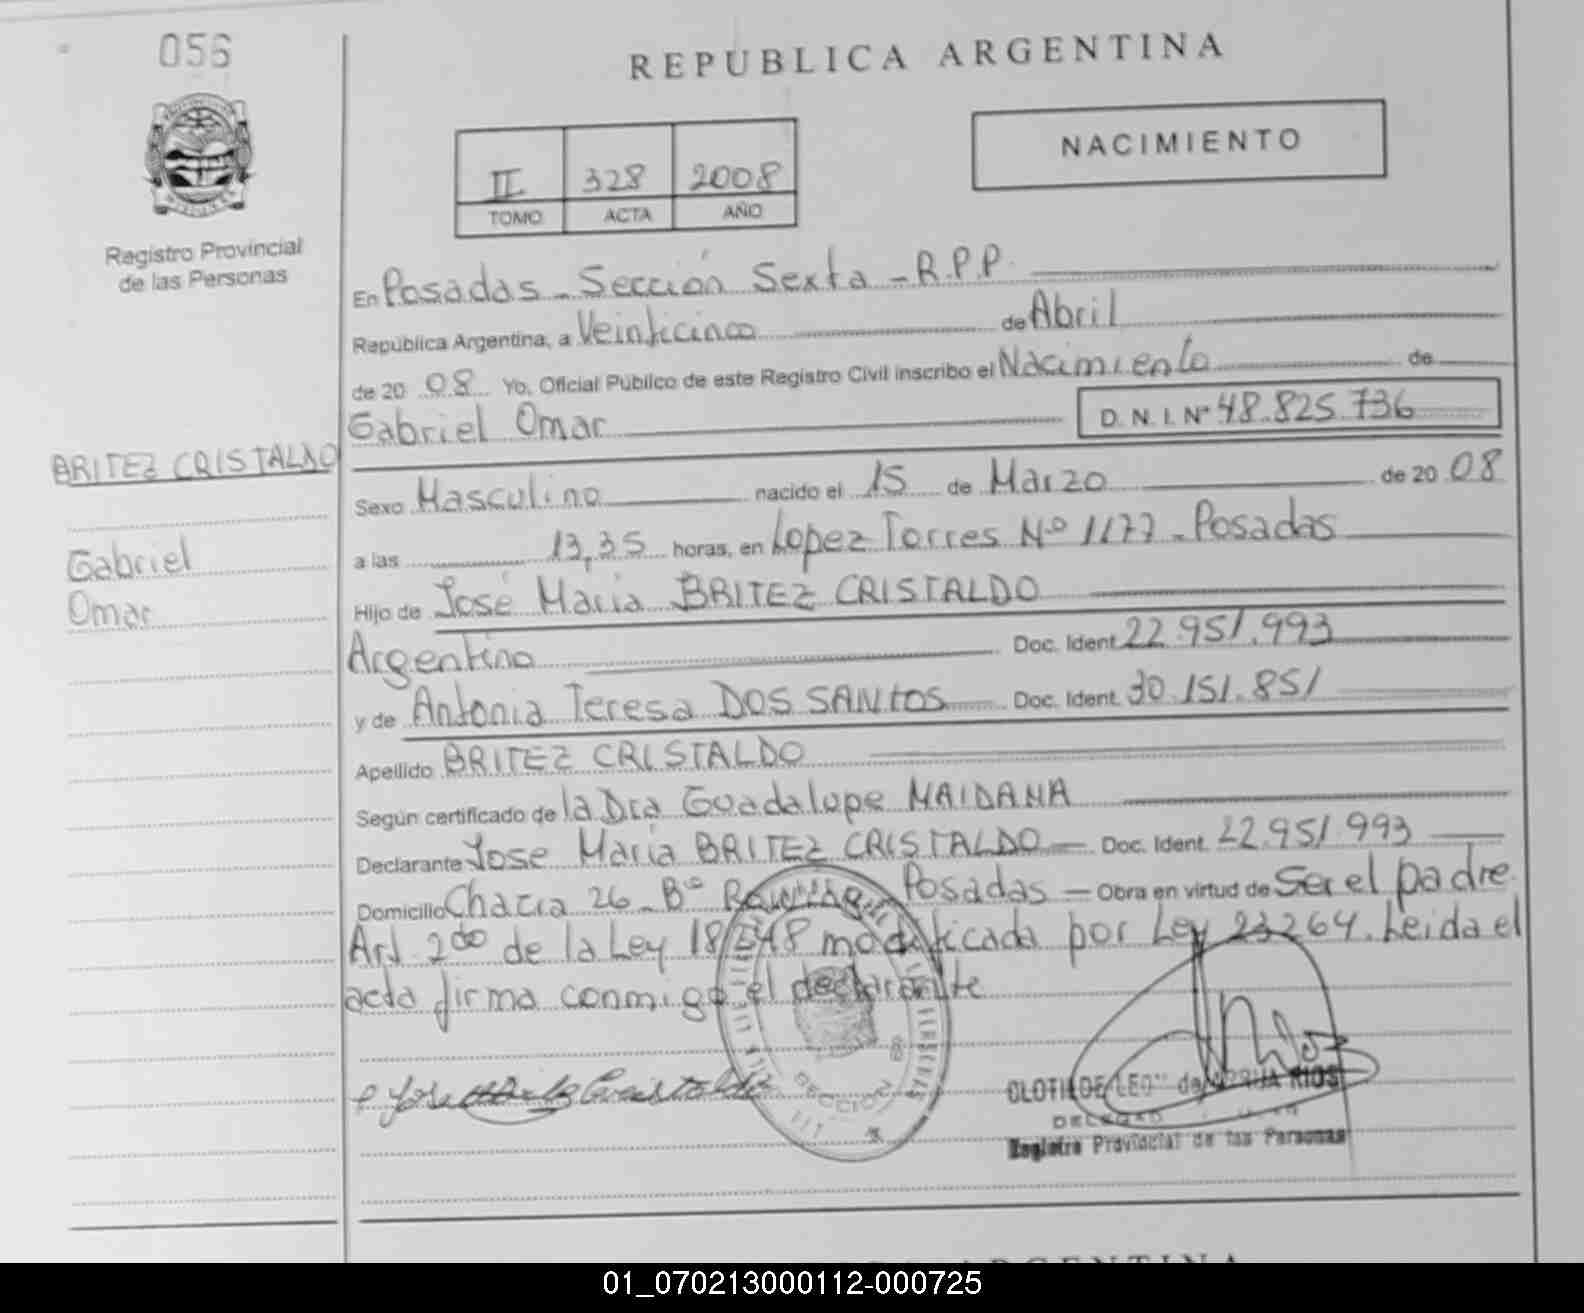 056
REPUBLICA ARGENTINA
NACIMIENTO
II 328 2008
TOMO ACTA AÑO
Registro Provincial
de las Personas
En Posadas - Sección Sexta - R.P.P.
República Argentina, a Veinticinco de Abril
de 20 08 Yo, Oficial Público de este Registro Civil inscribo el Nacimiento de
Gabriel Omar D.N.I. Nº 48.825.736
BRITEZ CRISTALDO
Sexo Masculino nacido el 15 de Marzo de 20 08
Gabriel
Omar
a las 13,35 horas, en Lopez Torres Nº 1177 - Posadas
Hijo de José Maria BRITEZ CRISTALDO
Argentino Doc. Ident. 22.951.993
y de Antonia Teresa DOS SANTOS Doc. Ident. 30.151.851
Apellido BRITEZ CRISTALDO
Según certificado de la Dra Guadalupe MAIDANA
Declarante Jose Maria BRITEZ CRISTALDO — Doc. Ident. 22.951.993
Domicilio Chacra 26 - Bº Posadas — Obra en virtud de Ser el padre
Art 2do de la Ley 18248 modificada por Ley 23264. Leida el
acta firma conmigo el declarante
SECCION
CLOTILDE de RIOS
Registro Provincial de las Personas
ARGENTINA
01_070213000112-000725